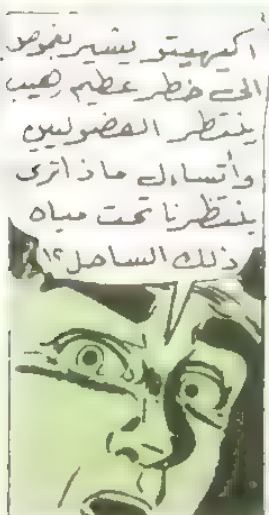 اكيهيتو يشير بغموض
الى خطر عظيم رهيب
ينتظر الفضوليين
وأتساءل ماذا ترى
ينتظرنا تحت مياه
ذلك الساحل؟!